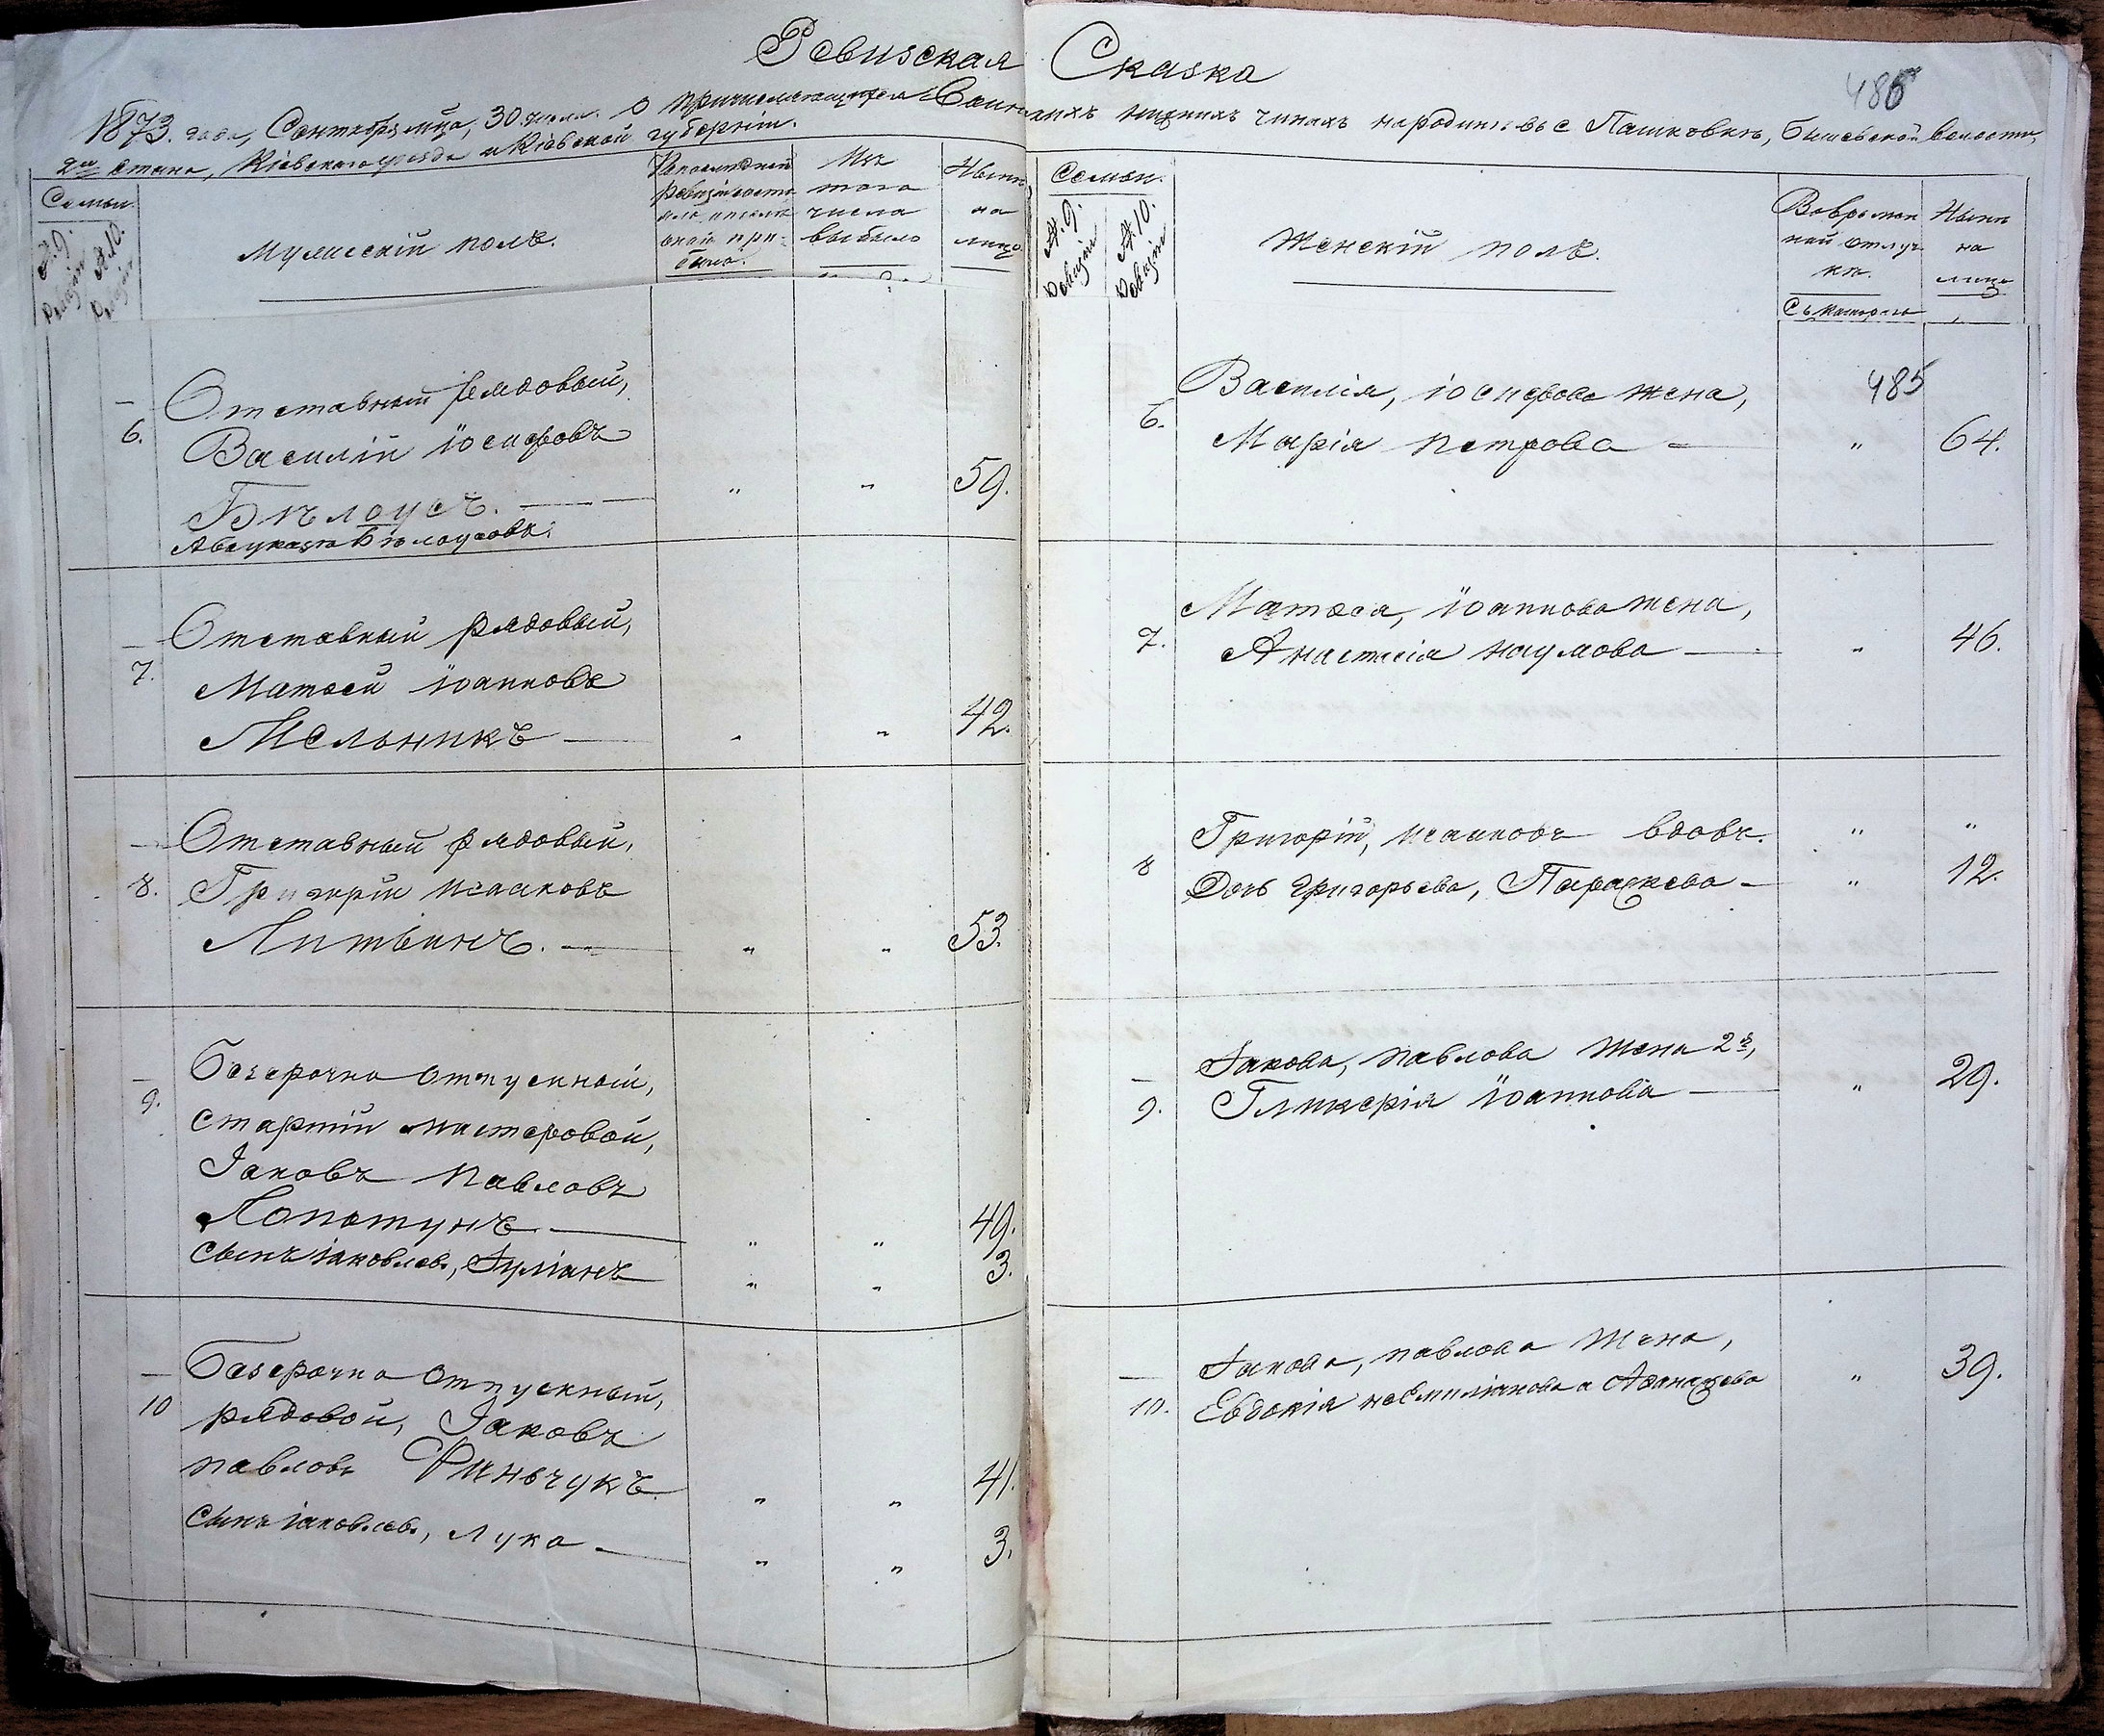 Ревизская Сказка
486
1873. года, Сентября м‑ца, 30. числа. О причисляющихся Воинскихъ нижнихъ чинахъ народившихъ въ с Пашковкѣ, Бышевской волости,
2го Стана, Кіевскаго уѣзда и Кіевской губерніи.
Семьи.
№ 9. Ревизіи
№ 10. Ревизіи
Мужескій полъ.
Изъ того числа выбыло
Нынѣ на лицо
6.
Отставный Рядовый,
Василій Іосифовъ
Бѣлоусъ. „ „ 59.
А по указу Бѣлоусовъ.
7.
Отставный рядовый,
Матѳей Іоанновъ
Мельникъ „ „ 42.
8.
Отставный рядовый,
Григорій Исааковъ
Литвинъ. „ „ 53.
9.
Безсрочно отпускный,
старшій мастеровой,
Іаковъ Павловъ
Лопатунъ „ „ 49.
Сынъ Іаковлевъ, Іуліанъ „ „ 3.
10
Безсрочно отпускный,
рядовой, Іаковъ
Павловъ Финьчукъ „ „ 41.
Сынъ Іаковлевъ, Лука „ „ 3.
Семьи.
№ 9. Ревизіи
№ 10. Ревизіи
Женскій полъ.
Во временной отлучкѣ.
Съ котораго
Нынѣ на лицо
485
6.
Василія, Іосифова жена,
Марія Петрова „ 64.
7.
Матѳея, Іоаннова жена,
Анастасія Наумова „ 46.
8
Григорій, Исааковъ вдовъ. „ „
Дочь Григорьева, Параскева „ 12.
9.
Іакова, Павлова жена 2я,
Гликерія Іоаннова „ 29.
10.
Іакова, Павлова жена,
Евдокія не Емиліанова а Аѳанасьева „ 39.